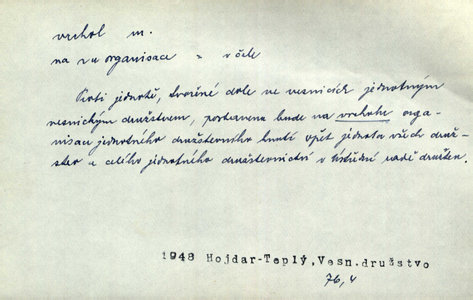 vrchol m.
na v u organisace = v čele
Proti jednotě, tvořené dole ve vesnicích jednotným
vesnickým družstvem, postavena bude na vrcholu orga-
nisaci jednotného družstevního hnutí opět jednota všech druž-
stev a celého jednotného družstevnictví v Ústřední radě družstev.
1948 Hojdar-Teplý,Vesn.družstvo
76,4